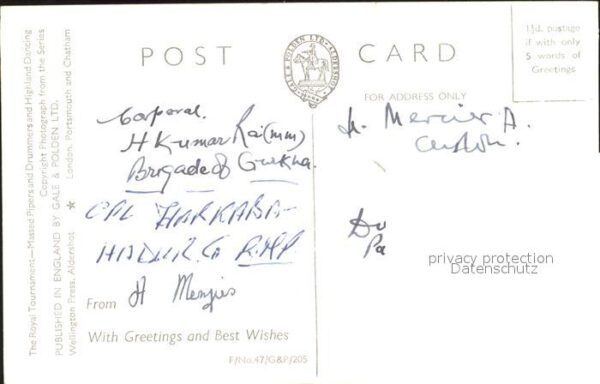 POST CARD
GALE & POLDEN LTD. ALDERSHOT
1½d. postage
if with only
5 words of
Greetings
FOR ADDRESS ONLY
The Royal Tournament—Massed Pipers and Drummers and Highland Dancing
Copyright Photograph from the Series
PUBLISHED IN ENGLAND BY GALE & POLDEN LTD.
Wellington Press, Aldershot ★ London, Portsmouth and Chatham
Corporal.
H Kumar Rai (mm)
Brigade of Gurkha.
CPL HARKABA-
HADUR. G R.M.P.
From H Menzies
With Greetings and Best Wishes
F/No.47/G&P/205
Mercier A.
Du
Pa
privacy protection
Datenschutz